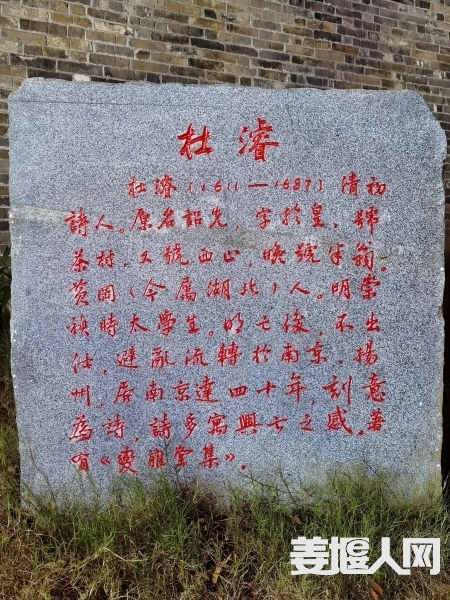 杜濬
杜濬（1611—1687）清初
詩人。原名詔先，字於皇，號
茶村，又號西止，晚號半翁。
黄岡（今属湖北）人。明崇
禎時太學生。明亡後，不出
仕，避亂流轉於南京、揚
州，居南京達四十年，刻意
為詩，詩多寓興亡之感。著
有《變雅堂集》。
姜堰人网